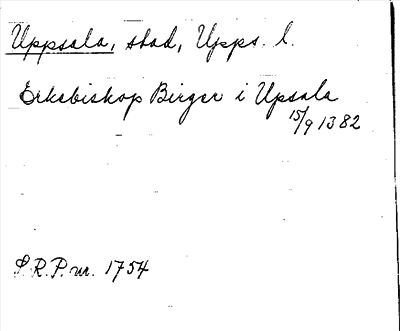 Uppsala, stad, Upps. l.
Erkebiskop Birger i Upsala
15/9 1382
S.R.P. nr. 1754